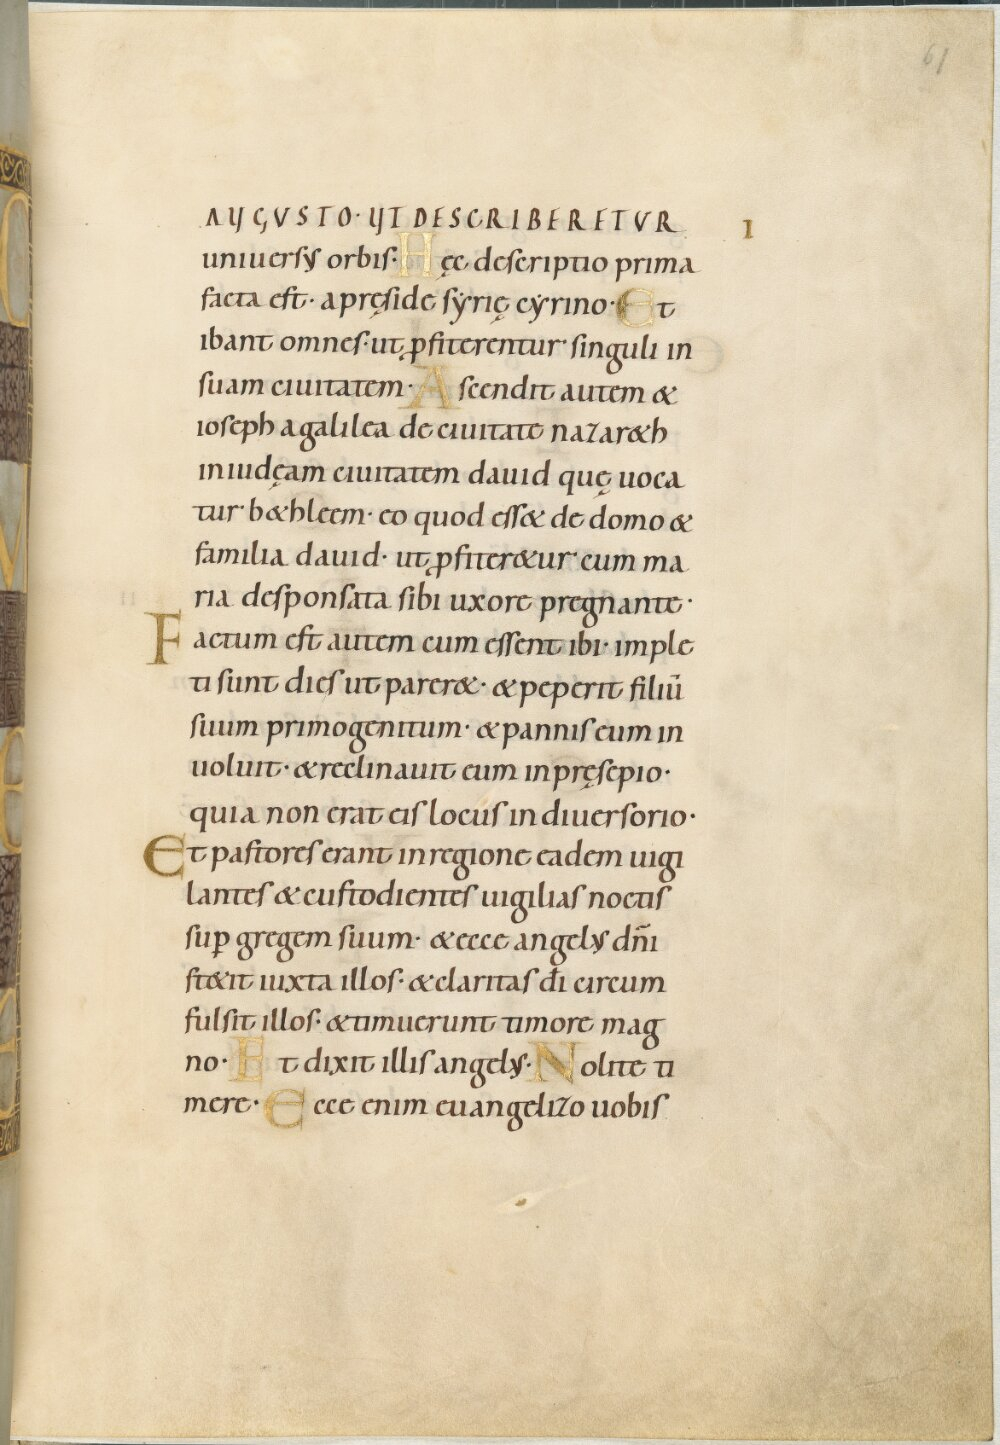 61
AUGUSTO· UT DESCRIBERETUR I
uniuersus orbis· Hęc descriptio prima
facta est· apręside sẏrię cẏrino· Et
ibant omnes· ut ꝓfiterentur singuli in
suam ciuitatem· Ascendit autem &
ioseph agalilea de ciuitate nazar&h
iniudęam ciuitatem dauid quę uoca
tur b&hleem· eo quod ess& de domo &
familia dauid· ut ꝓfiter&ur cum ma
ria desponsata sibi uxore pregnante·
Factum est autem cum essent ibi· imple
ti sunt dies ut parer&· & peperit filiū
suum primogenitum· & pannis eum in
uoluit· & reclinauit eum inpręsepio·
quia non erat eis locus in diuersorio·
Et pastores erant inregione eadem uigi
lantes & custodientes uigilias noctis
suꝑ gregem suum· & ecce angelus dn̄i
st&it iuxta illos· & claritas dī circum
fulsit illos· & timuerunt timore mag
no· Et dixit illis angelus· Nolite ti
mere· Ecce enim euangelizo uobis